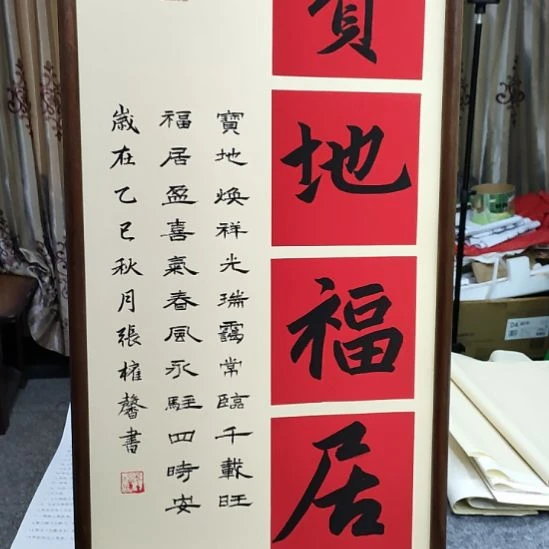 寶地福居
寶地煥祥光瑞靄常臨千載旺
福居盈喜氣春風永駐四時安
歲在乙巳秋月張權馨書